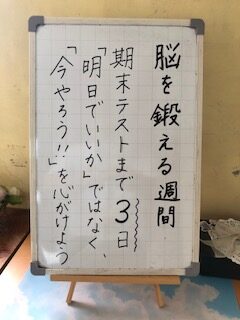 脳を鍛える週間
期末テストまで3日
「明日でいいか」ではなく、
「今やろう!!」を心がけよう